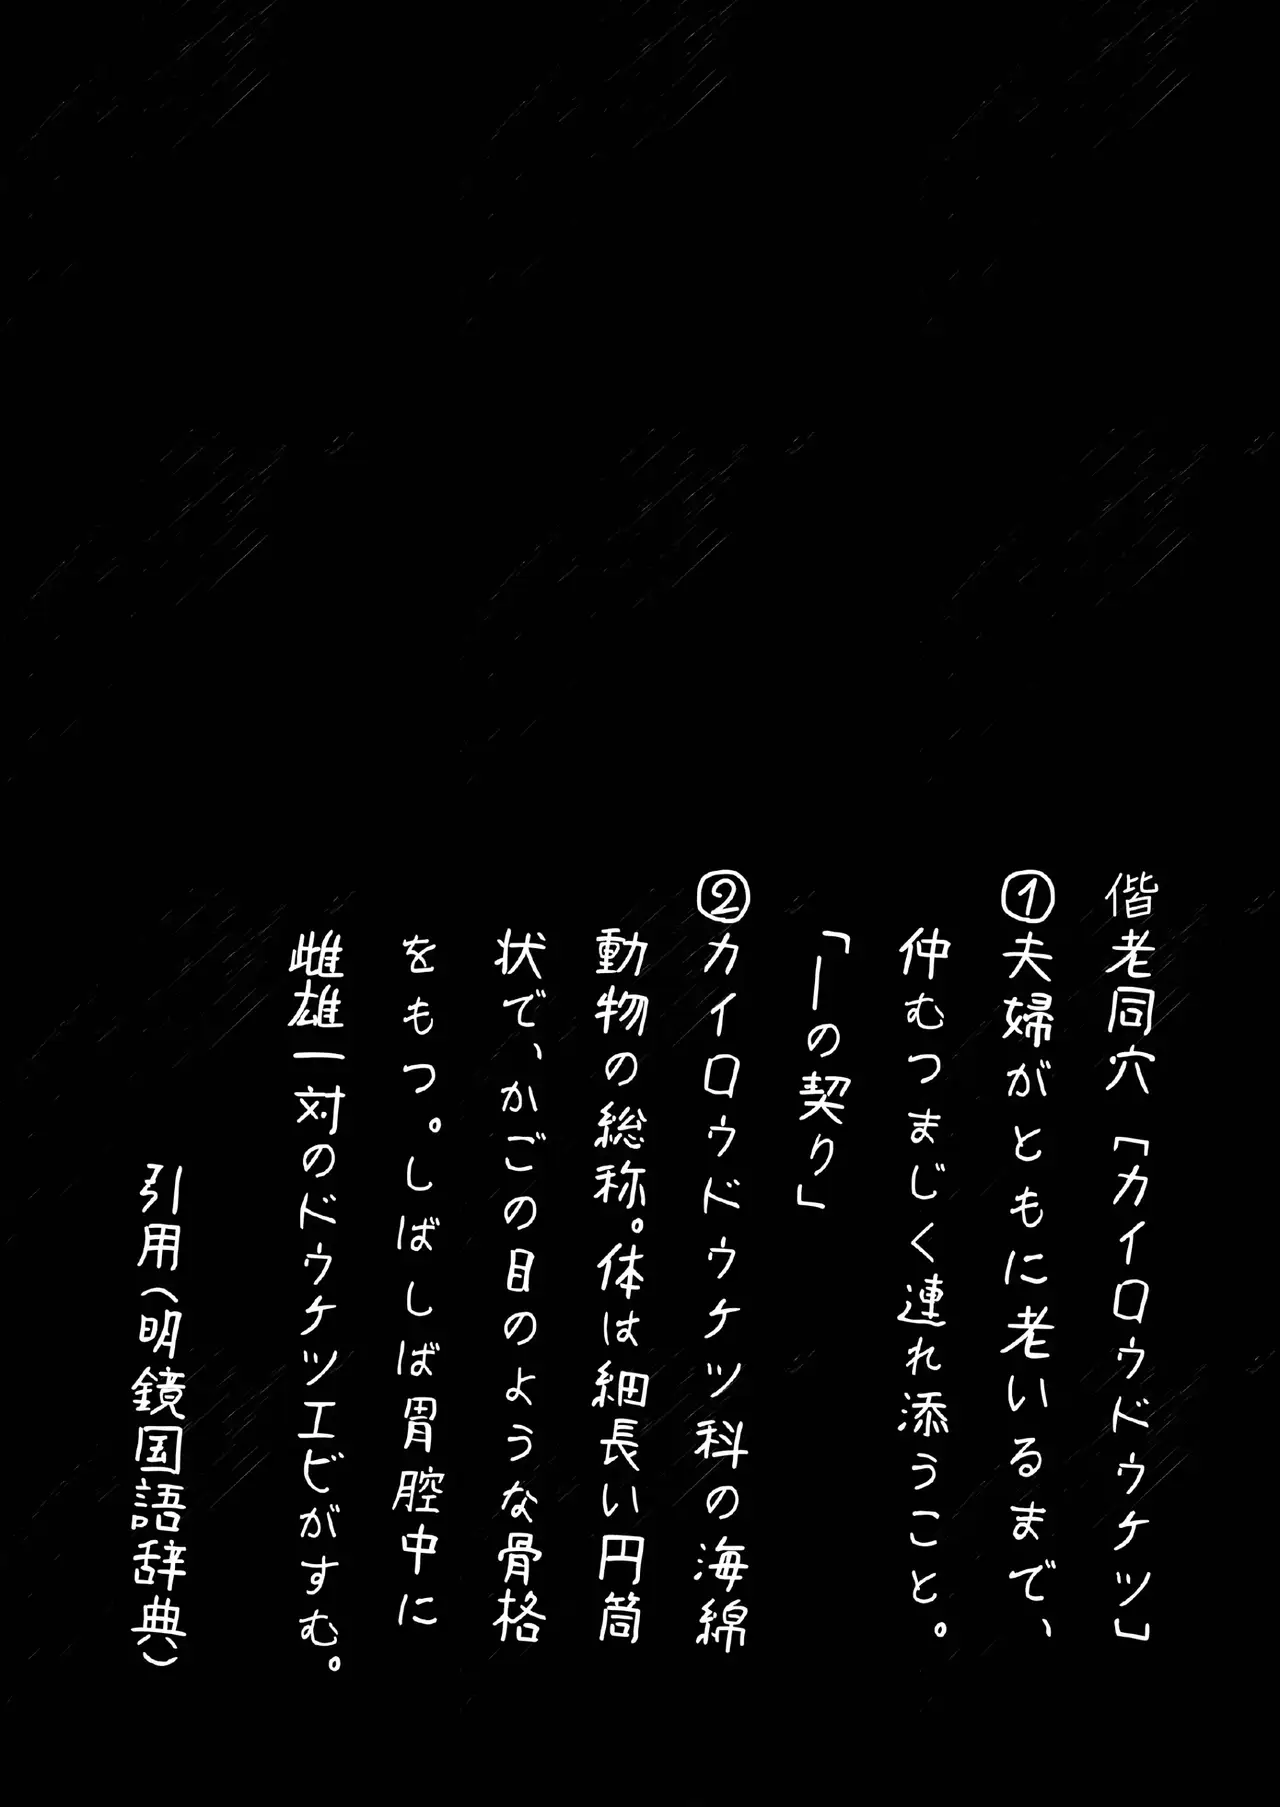 偕老同穴「カイロウドウケツ」
①夫婦がともに老いるまで、
仲むつまじく連れ添うこと。
「―の契り」
②カイロウドウケツ科の海綿
動物の総称。体は細長い円筒
状で、かごの目のような骨格
をもつ。しばしば胃腔中に
雌雄一対のドウケツエビがすむ。
引用(明鏡国語辞典)